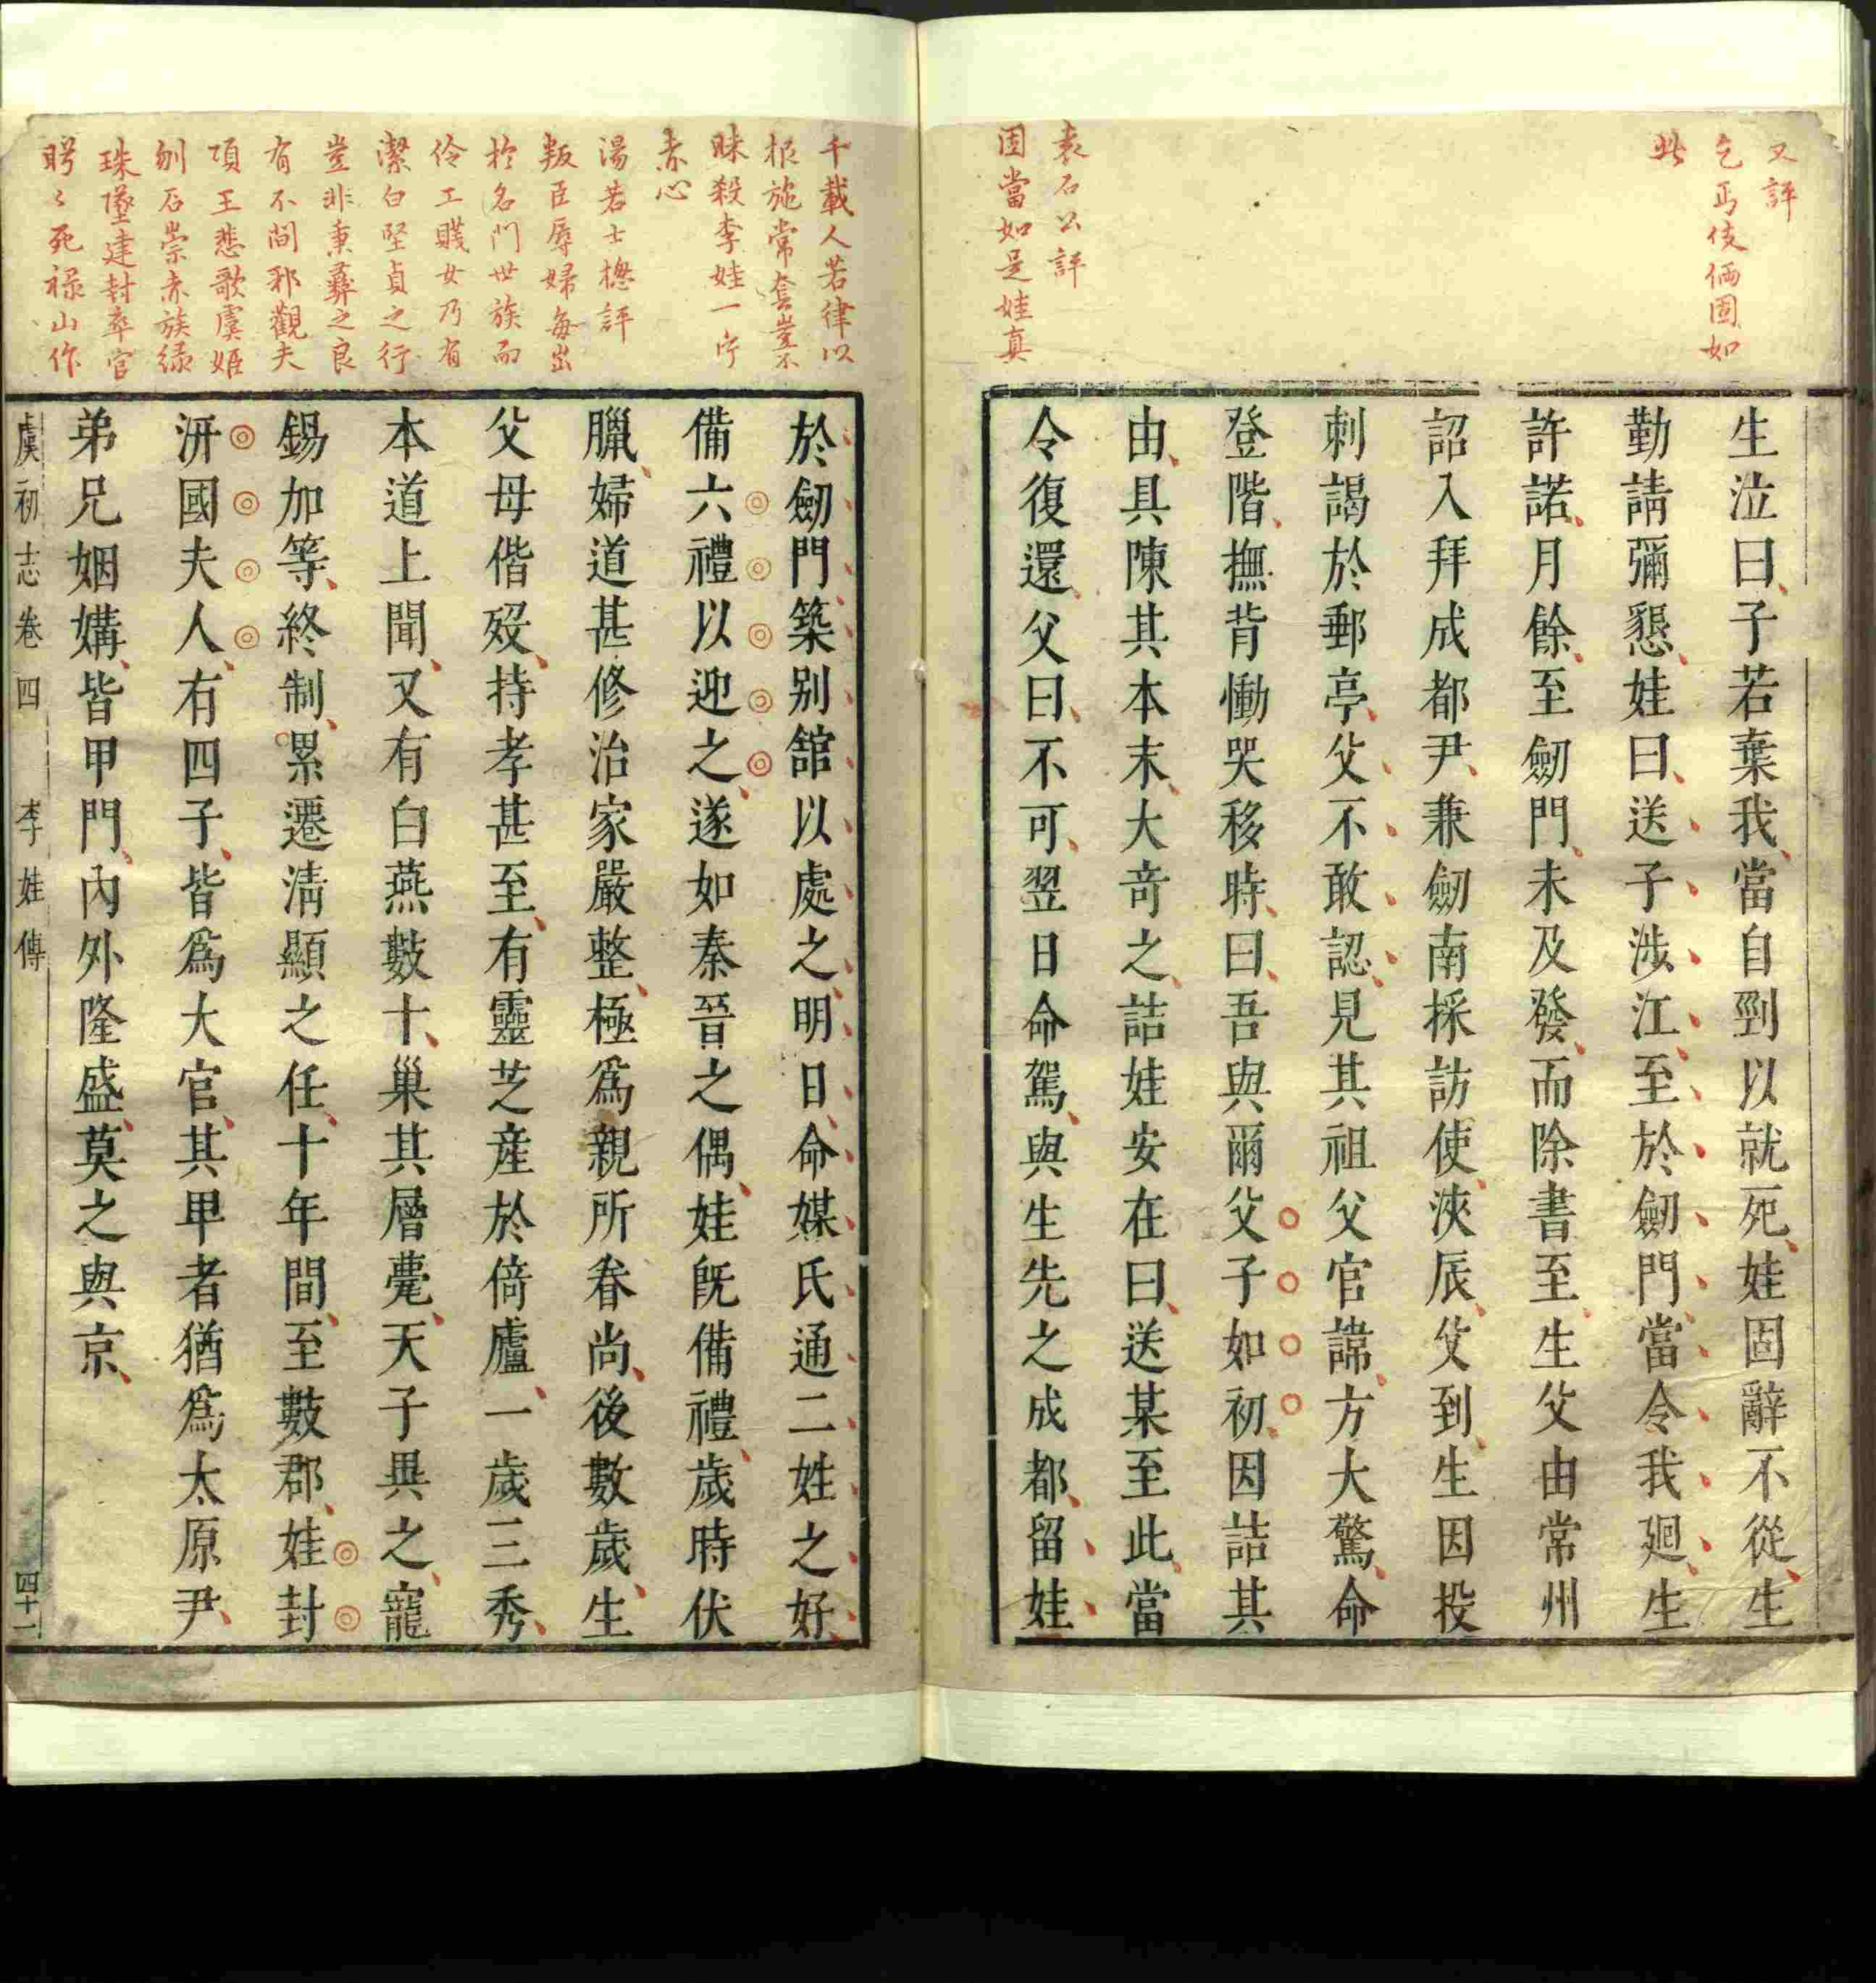 又評
乞丐伎倆固如
此
袁石公評
固當如是娃真
生泣曰子若棄我當自剄以就死娃固辭不從生
勤請彌懇娃曰送子涉江至於劒門當令我廻生
許諾月餘至劒門未及發而除書至生父由常州
詔入拜成都尹兼劒南採訪使浹辰父到生因投
刺謁於郵亭父不敢認見其祖父官諱方大驚命
登階撫背慟哭移時曰吾與爾父子如初因詰其
由具陳其本末大奇之詰娃安在曰送某至此當
令復還父曰不可翌日命駕與生先之成都留娃
千載人若律以
根施常套豈不
昧殺李娃一片
赤心
湯若士總評
叛臣辱婦每出
於名門世族而
伶工賤女乃有
潔白堅貞之行
豈非秉彝之良
有不間邪觀夫
項王悲歌虞姬
刎石崇赤族綠
珠墜建封卒官
盼々死祿山作
於劒門築别舘以處之明日命媒氏通二姓之好
備六禮以迎之遂如秦晉之偶娃旣備禮歲時伏
臘婦道甚修治家嚴整極爲親所眷尚後數歲生
父母偕歿持孝甚至有靈芝産於倚廬一歲三秀
本道上聞又有白燕數十巢其層甍天子異之寵
錫加等終制累遷淸顯之任十年間至數郡娃封
汧國夫人有四子皆爲大官其甲者猶爲太原尹
弟兄姻媾皆甲門內外隆盛莫之與京
虞初志卷四 李娃傳 四十一